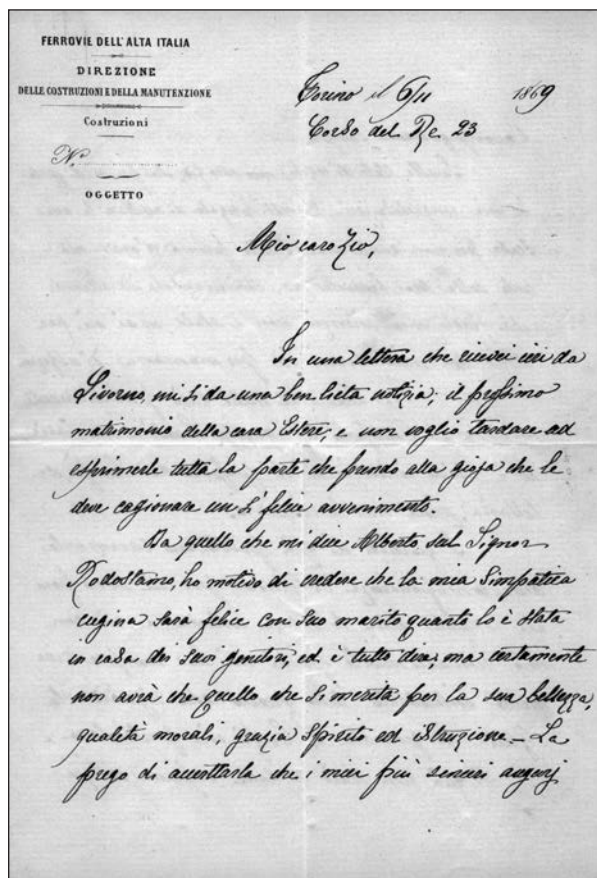 FERROVIE DELL'ALTA ITALIA
DIREZIONE
DELLE COSTRUZIONI E DELLA MANUTENZIONE
Costruzioni
N.
OGGETTO
Torino il 6/11 1869
Corso del Re 23
Mio caro Zio,
In una lettera che ricevei ieri da
Livorno, mi si da una ben lieta notizia; il prossimo
matrimonio della cara Ester, e non voglio tardare ad
esprimerle tutta la parte che prendo alla gioja che le
deve cagionare un sì felice avvenimento.
Da quello che mi dice Alberto sul Signor
Rodostamo, ho motivo di credere che la mia simpatica
cugina sarà felice con suo marito quanto lo è stata
in casa dei suoi genitori, ed è tutto dire; ma certamente
non avrà che quello che si merita per la sua bellezza,
qualità morali, grazia spirito ed istruzione – La
prego di accertarla che i miei più sinceri augurj